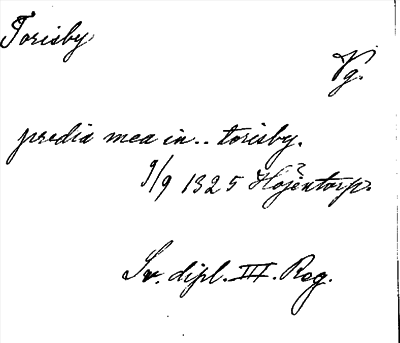 Torisby
Vg.
predia mea in.. torisby.
9/9 1325 Höjentorp.
Sv. dipl. III. Reg.